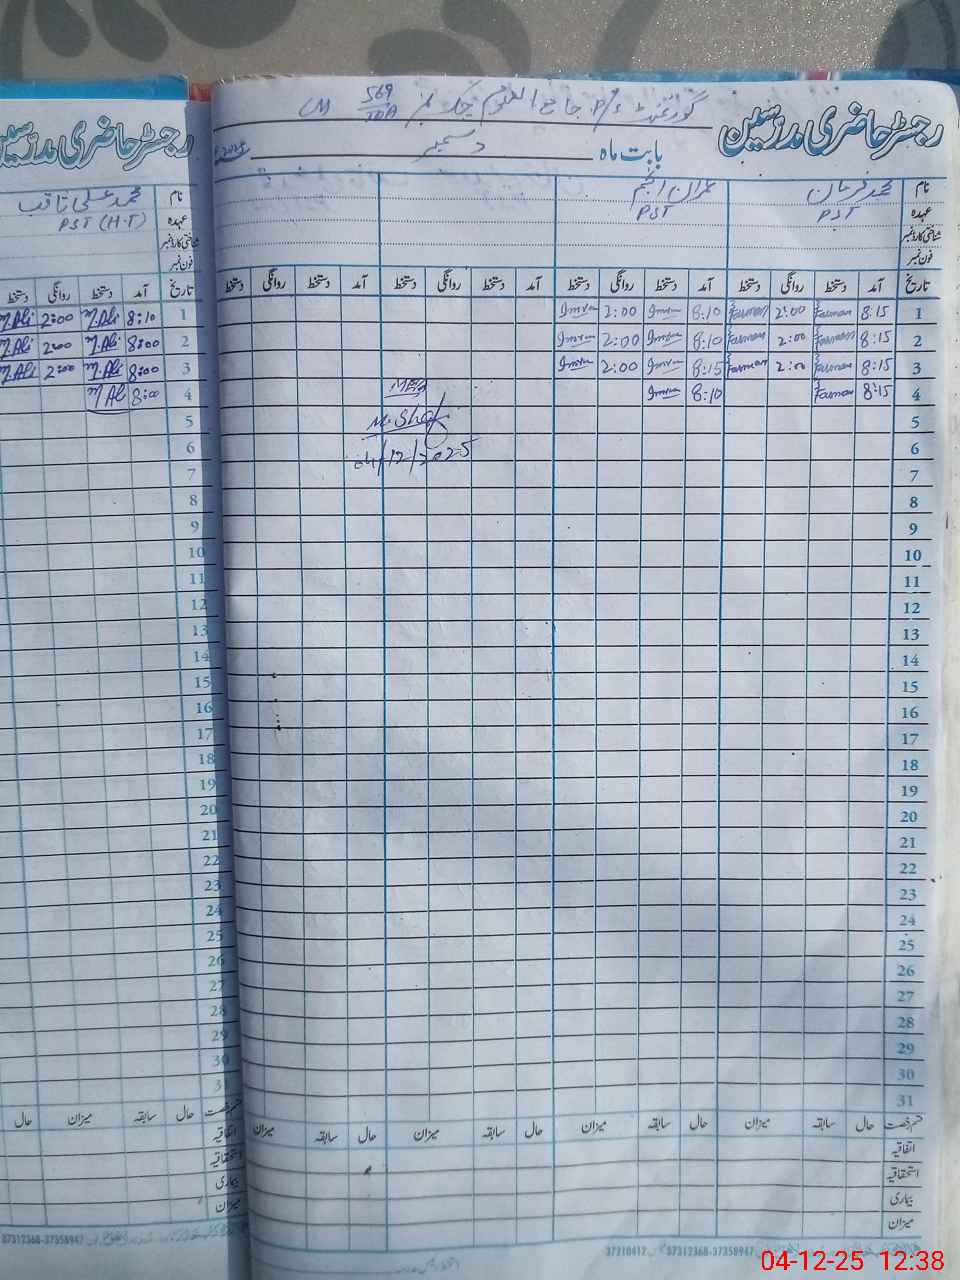 رجسٹر حاضری مدرسین
گورنمنٹ جامع العلوم چک نمبر 569/TDA
بابت ماہ دسمبر 2025
نام محمد فرحان عمران انجم
عہدہ PST PST
شناختی کارڈ نمبر
فون نمبر
تاریخ آمد دستخط روانگی دستخط آمد دستخط روانگی دستخط آمد دستخط روانگی دستخط آمد دستخط روانگی دستخط
1 8:15 Farman 2:00 Farman 8:10 Imran 2:00 Imran
2 8:15 Farman 2:00 Farman 8:10 Imran 2:00 Imran
3 8:15 Farman 2:00 Farman 8:15 Imran 2:00 Imran
4 8:15 Farman 8:10 Imran
5
M. Shaf
6
04/12/2025
7
8
9
10
11
12
13
14
15
16
17
18
19
20
21
22
23
24
25
26
27
28
29
30
31
حال سابقہ میزان حال سابقہ میزان حال سابقہ میزان حال سابقہ میزان
اتفاقیہ
استحقاقیہ
بیماری
میزان
37310412 37312368-37358947
رجسٹر حاضری مدرسین
نام محمد علی ثاقب
عہدہ PST (H-T)
شناختی کارڈ نمبر
فون نمبر
تاریخ آمد دستخط روانگی دستخط
1 8:10 M.Ali 2:00 M.Ali
2 8:00 M.Ali 2:00 M.Ali
3 8:00 M.Ali 2:00 M.Ali
4 8:00 M Ali
5
6
7
8
9
10
11
12
13
14
15
16
17
18
19
20
21
22
23
24
25
26
27
28
29
30
31
حال سابقہ میزان حال
اتفاقیہ
استحقاقیہ
بیماری
میزان
37312368-37358947
04-12-25 12:38